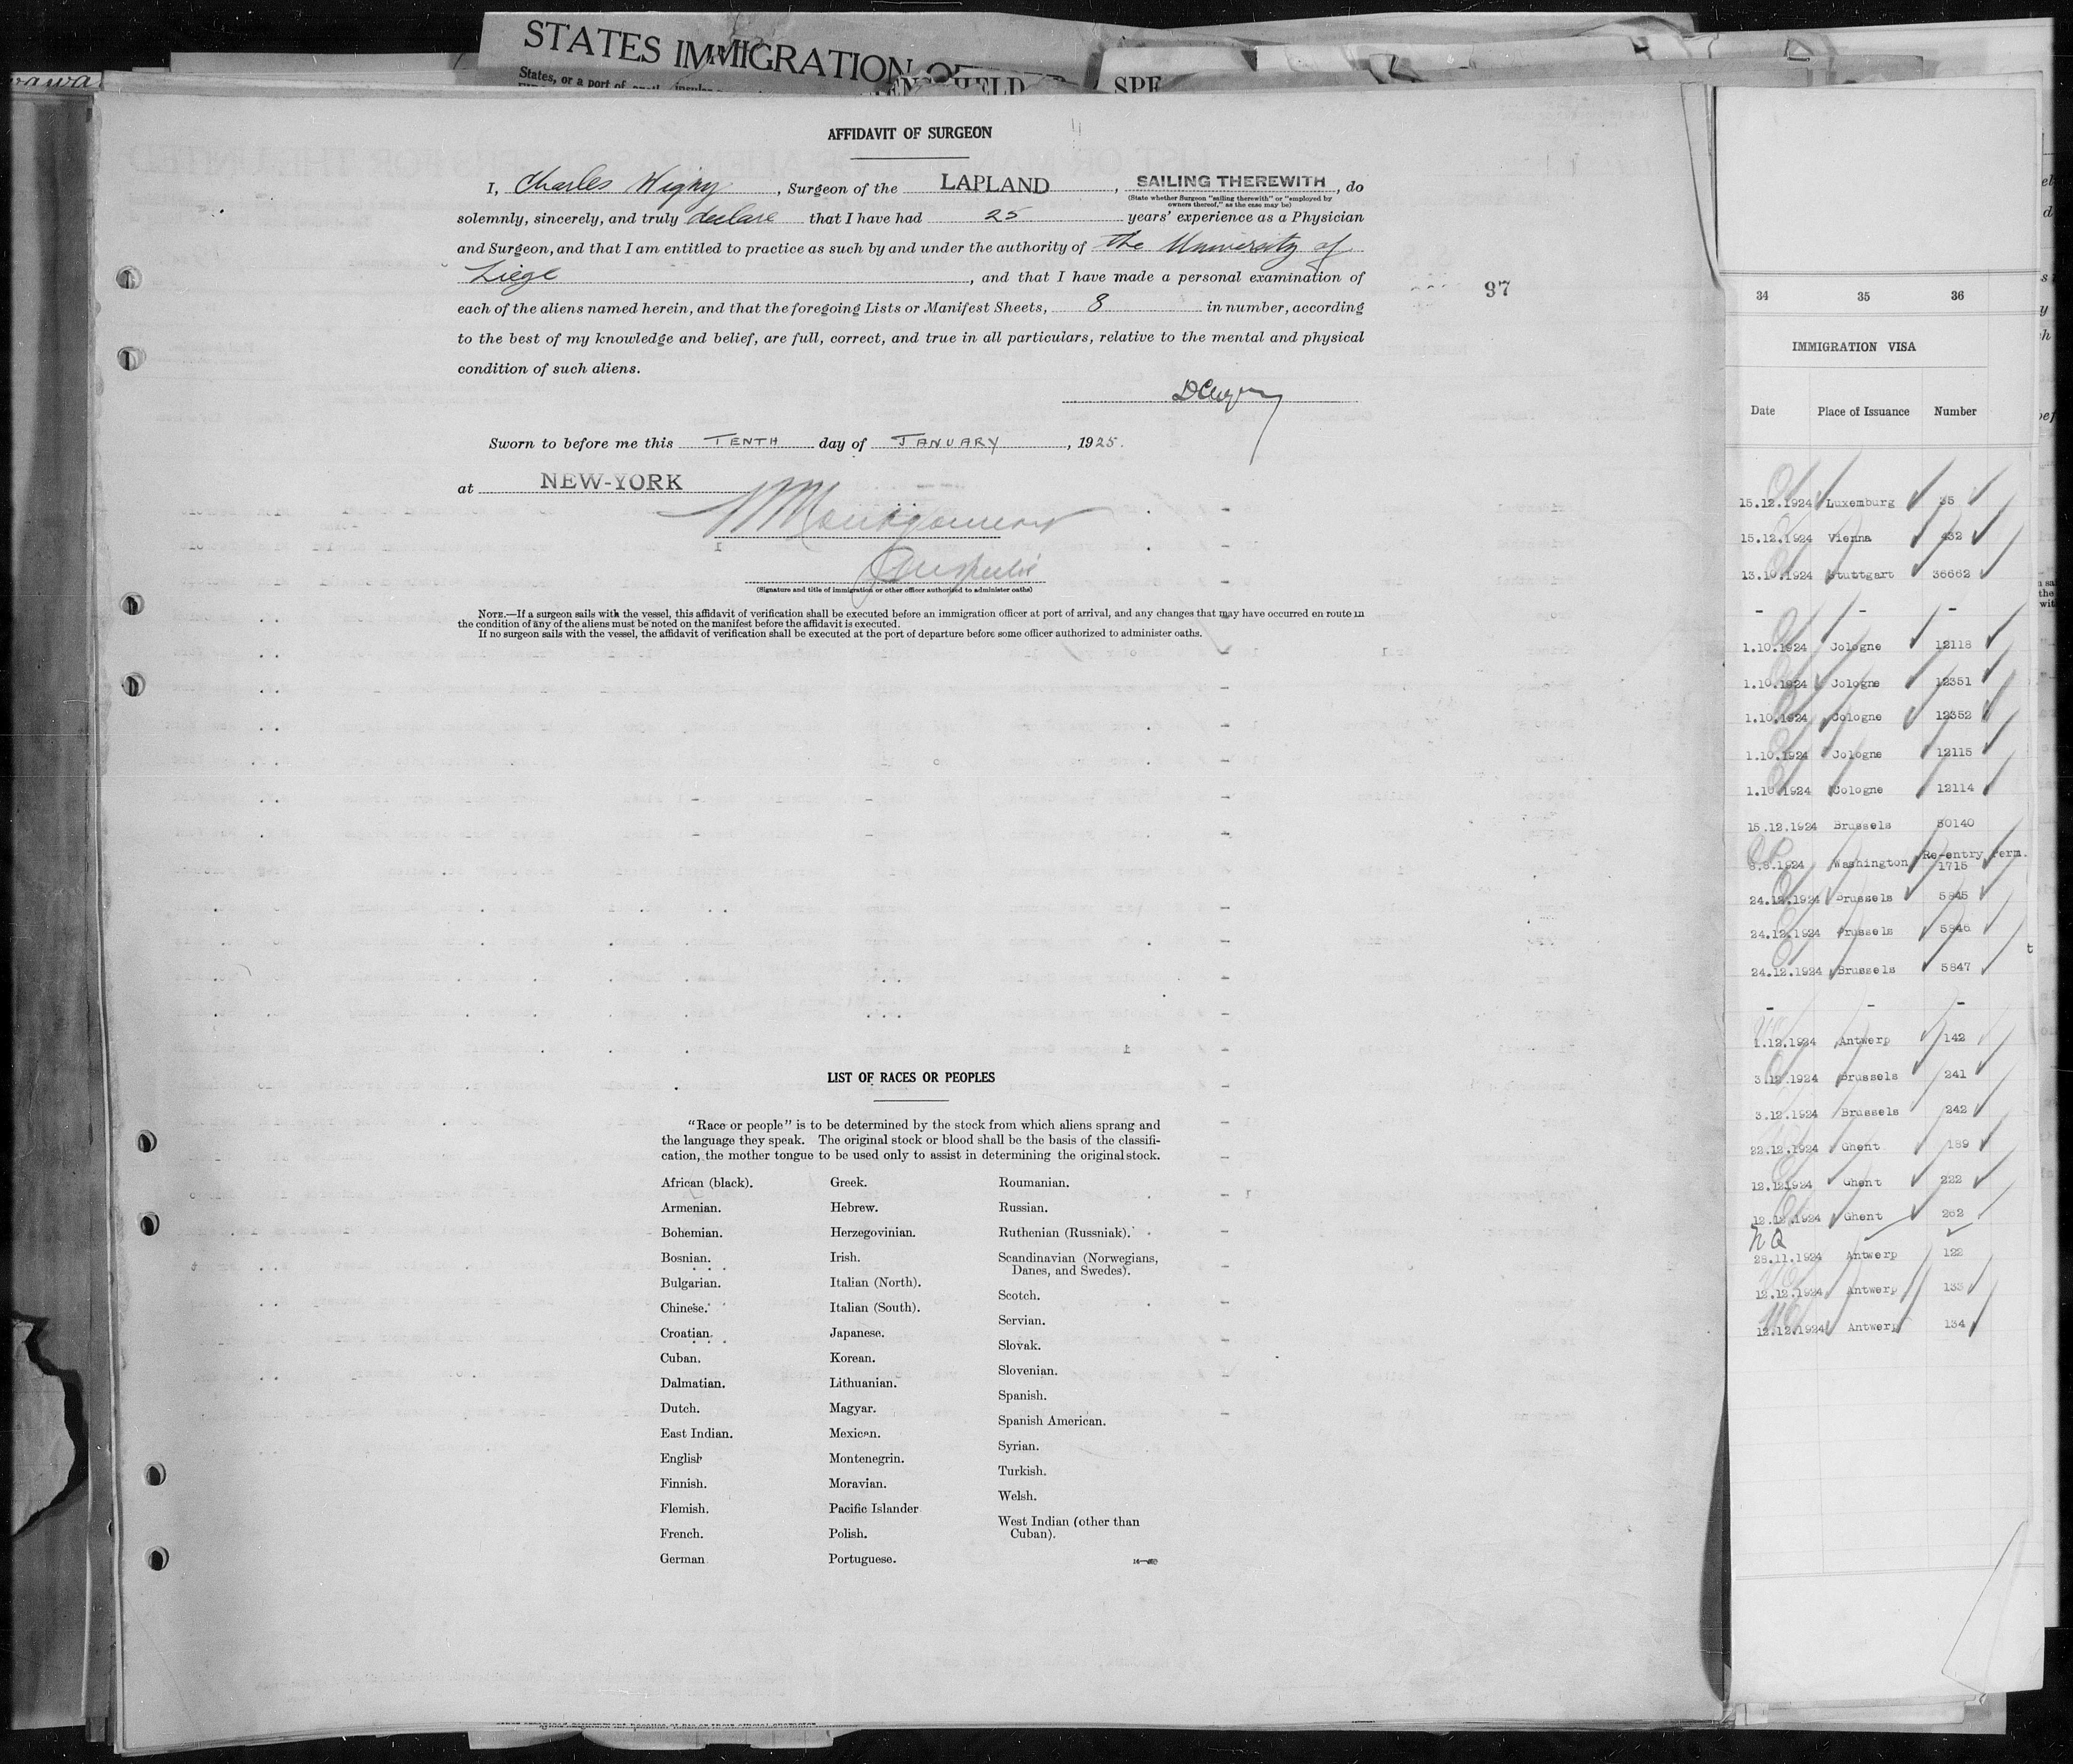 STATES IMMIGRATION
States, or a port of
HELD
SPE
AFFIDAVIT OF SURGEON
I, Charles Wigny, Surgeon of the LAPLAND, SAILING THEREWITH, do
(State whether Surgeon "sailing therewith" or "employed by
owners thereof," as the case may be)
solemnly, sincerely, and truly declare that I have had 25 years' experience as a Physician
and Surgeon, and that I am entitled to practice as such by and under the authority of the University of
Liege, and that I have made a personal examination of
each of the aliens named herein, and that the foregoing Lists or Manifest Sheets, 8 in number, according
to the best of my knowledge and belief, are full, correct, and true in all particulars, relative to the mental and physical
condition of such aliens.
97
Sworn to before me this TENTH day of JANUARY, 1925.
at NEW-YORK
Montgomery
(Signature and title of immigration or other officer authorized to administer oaths)
NOTE.—If a surgeon sails with the vessel, this affidavit of verification shall be executed before an immigration officer at port of arrival, and any changes that may have occurred en route in
the condition of any of the aliens must be noted on the manifest before the affidavit is executed.
If no surgeon sails with the vessel, the affidavit of verification shall be executed at the port of departure before some officer authorized to administer oaths.
LIST OF RACES OR PEOPLES
"Race or people" is to be determined by the stock from which aliens sprang and
the language they speak. The original stock or blood shall be the basis of the classifi-
cation, the mother tongue to be used only to assist in determining the original stock.
African (black).
Armenian.
Bohemian.
Bosnian.
Bulgarian.
Chinese.
Croatian.
Cuban.
Dalmatian.
Dutch.
East Indian.
English
Finnish.
Flemish.
French.
German
Greek.
Hebrew.
Herzegovinian.
Irish.
Italian (North).
Italian (South).
Japanese.
Korean.
Lithuanian.
Magyar.
Mexican.
Montenegrin.
Moravian.
Pacific Islander
Polish.
Portuguese.
Roumanian.
Russian.
Ruthenian (Russniak).
Scandinavian (Norwegians,
Danes, and Swedes).
Scotch.
Servian.
Slovak.
Slovenian.
Spanish.
Spanish American.
Syrian.
Turkish.
Welsh.
West Indian (other than
Cuban).
34 35 36
IMMIGRATION VISA
Date Place of Issuance Number
15.12.1924 Luxemburg 35
15.12.1924 Vienna 432
13.10.1924 Stuttgart 36662
- - -
1.10.1924 Cologne 12118
1.10.1924 Cologne 12351
1.10.1924 Cologne 12352
1.10.1924 Cologne 12115
1.10.1924 Cologne 12114
15.12.1924 Brussels 50140
8.8.1924 Washington Re-entry Perm. 1715
24.12.1924 Brussels 5845
24.12.1924 Brussels 5846
24.12.1924 Brussels 5847
- - -
1.12.1924 Antwerp 142
3.12.1924 Brussels 241
3.12.1924 Brussels 242
22.12.1924 Ghent 189
12.12.1924 Ghent 222
12.12.1924 Ghent 262
NQ
28.11.1924 Antwerp 122
12.12.1924 Antwerp 133
12.12.1924 Antwerp 134